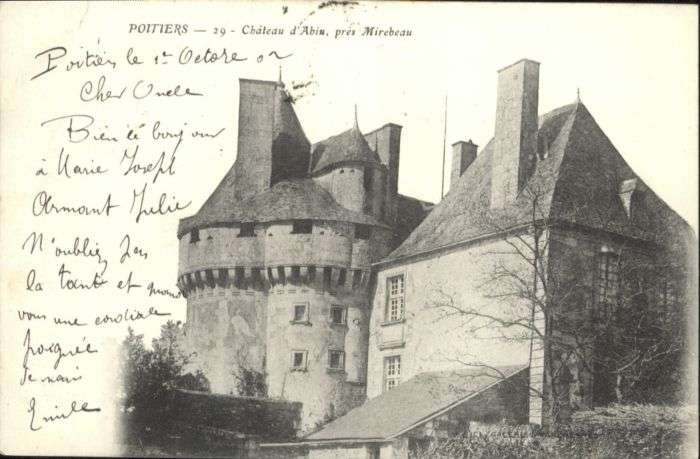 POITIERS — 29 - Château d'Abin, près Mirebeau
Poitiers le 1er Octore 02
Cher Oncle
Bien le bonjour
à Marie Joseph
Armant Julie
N'oubliez pas
la tante et pour
vous une cordiale
poignée
de main
Emile